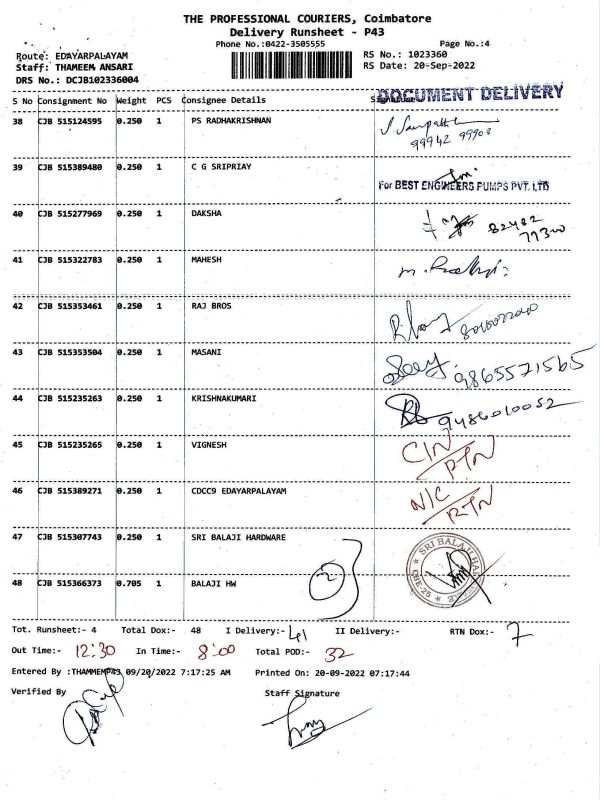 THE PROFESSIONAL COURIERS, Coimbatore
Delivery Runsheet - P43
Phone No.:0422-3505555
Page No.:4
Route: EDAYARPALAYAM
RS No.: 1023360
Staff: THAMEEM ANSARI
RS Date: 20-Sep-2022
DRS No.: DCJB102336004
DOCUMENT DELIVERY
S No Consignment No Weight PCS Consignee Details
38 CJB 515124595 0.250 1 PS RADHAKRISHNAN
99942 99908
39 CJB 515389480 0.250 1 C G SRIPRIAY
For BEST ENGINEERS PUMPS PVT. LTD
40 CJB 515277969 0.250 1 DAKSHA
82482
77300
41 CJB 515322783 0.250 1 MAHESH
42 CJB 515353461 0.250 1 RAJ BROS
43 CJB 515353504 0.250 1 MASANI
9865571565
44 CJB 515235263 0.250 1 KRISHNAKUMARI
9486010052
45 CJB 515235265 0.250 1 VIGNESH CIN
RTN
46 CJB 515389271 0.250 1 CDCC9 EDAYARPALAYAM N/C
RTN
47 CJB 515307743 0.250 1 SRI BALAJI HARDWARE
SRI BALAJI
CBE-25
2
48 CJB 515366373 0.705 1 BALAJI HW
Tot. Runsheet:- 4 Total Dox:- 48 I Delivery:- 41 II Delivery:- RTN Dox:- 7
Out Time:- 12:30 In Time:- 8:00 Total POD:- 32
Entered By :THAMMEMP43 09/20/2022 7:17:25 AM Printed On: 20-09-2022 07:17:44
Verified By Staff Signature